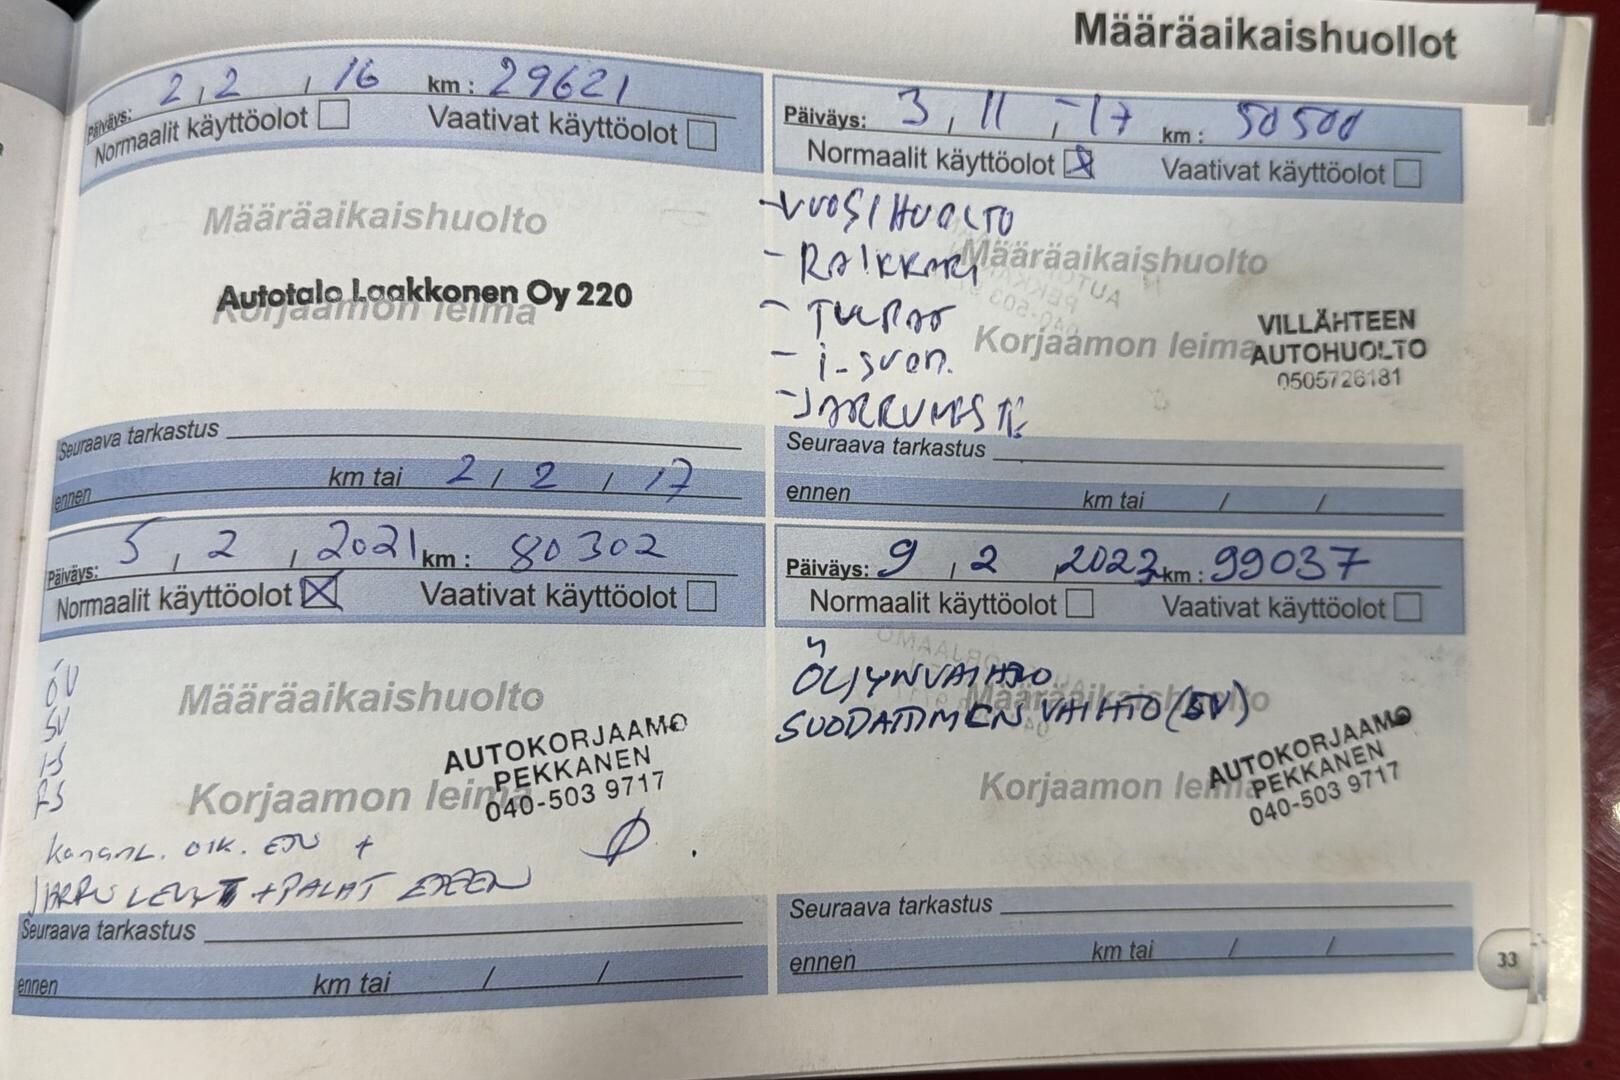 Määräaikaishuollot
Päiväys: 2, 2, 16 km: 29621
Normaalit käyttöolot Vaativat käyttöolot
Määräaikaishuolto
Autotalo Laakkonen Oy 220
Korjaamon leima
Seuraava tarkastus
ennen km tai 2 / 2 / 17
Päiväys: 3, 11, -17 km: 50500
Normaalit käyttöolot Vaativat käyttöolot
- VUOSIHUOLTO
Määräaikaishuolto
- RAIKKARI
- TULPAT
Korjaamon leima
VILLÄHTEEN
AUTOHUOLTO
0505726181
- i-suod.
- JARRUNESTE
Seuraava tarkastus
ennen km tai / /
Päiväys: 5, 2, 2021 km: 80302
Normaalit käyttöolot Vaativat käyttöolot
ÖV
SV
IS
RS
Määräaikaishuolto
Korjaamon leima
AUTOKORJAAMO
PEKKANEN
040-503 9717
OIK. ETU +
JARRULEVYT + PALAT ETEEN
Seuraava tarkastus
ennen km tai / /
Päiväys: 9, 2, 2023 km: 99037
Normaalit käyttöolot Vaativat käyttöolot
ÖLJYNVAIHTO
Määräaikaishuolto
SUODATTIMEN VAIHTO (SV)
Korjaamon leima
AUTOKORJAAMO
PEKKANEN
040-503 9717
Seuraava tarkastus
ennen km tai / /
33